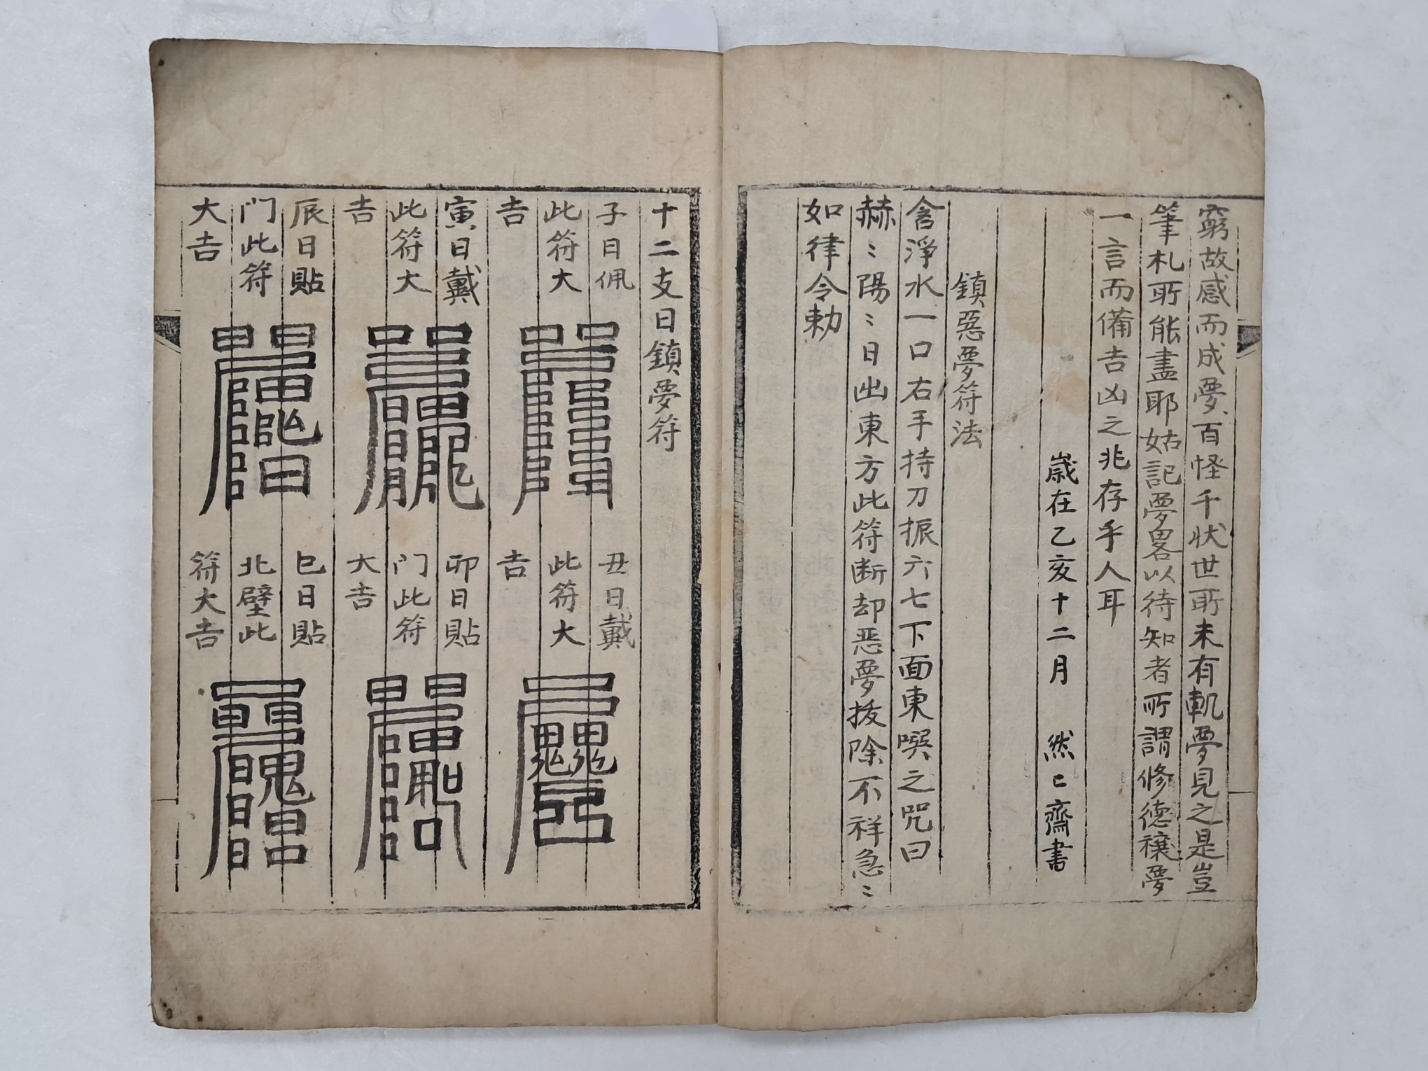 窮故感而成夢百怪千状世所未有軏夢見之是豈
筆札所能盡耶姑記夢畧以待知者所謂修德禳夢
一言而備吉凶之兆存乎人耳
歲在乙亥十二月 然已齋書
鎮惡夢符法
含淨水一口右手持刀振六七下面東噀之咒曰
赫〻陽〻日出東方此符断却恶夢拔除不祥急〻
如律令勅
十二支日鎮夢符
子日佩
此符大
吉
丑日戴
此符大
吉
寅日戴
此符大
吉
卯日貼
门此符
大吉
辰日貼
门此符
大吉
巳日貼
北壁此
符大吉